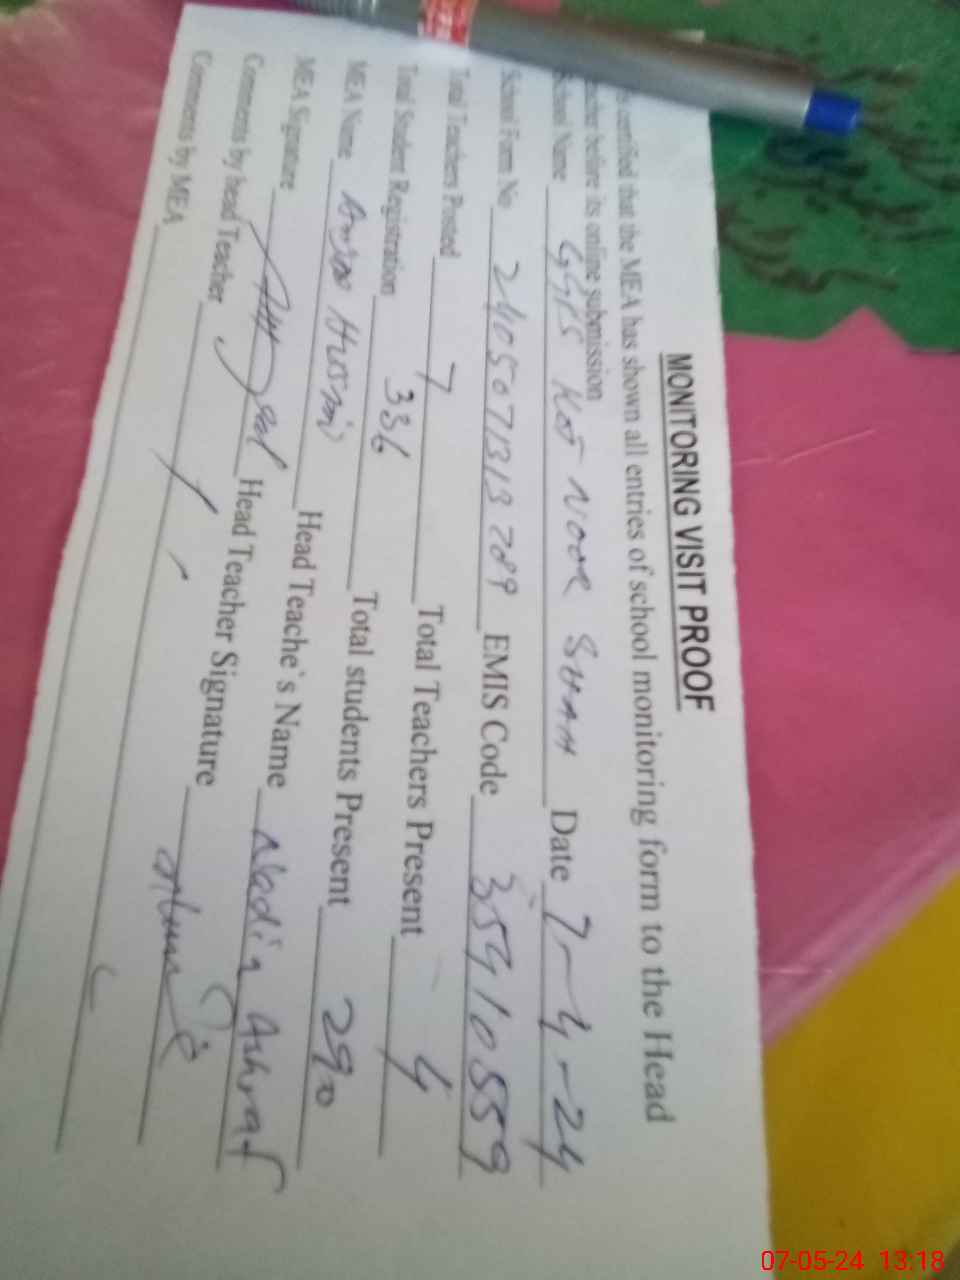 MONITORING VISIT PROOF
certified that the MEA has shown all entries of school monitoring form to the Head
before its online submission
School Name GGPS Kot NOOR SHAH Date 7-4-24
School Form No 2405071313789 EMIS Code 35410559
Total Teachers Posted 7 Total Teachers Present 4
Total Student Registration 336 Total students Present 290
MEA Name Hussain Head Teache`s Name Nadia Ashraf
MEA Signature Head Teacher Signature
Comments by head Teacher
Comments by MEA
07-05-24 13:18